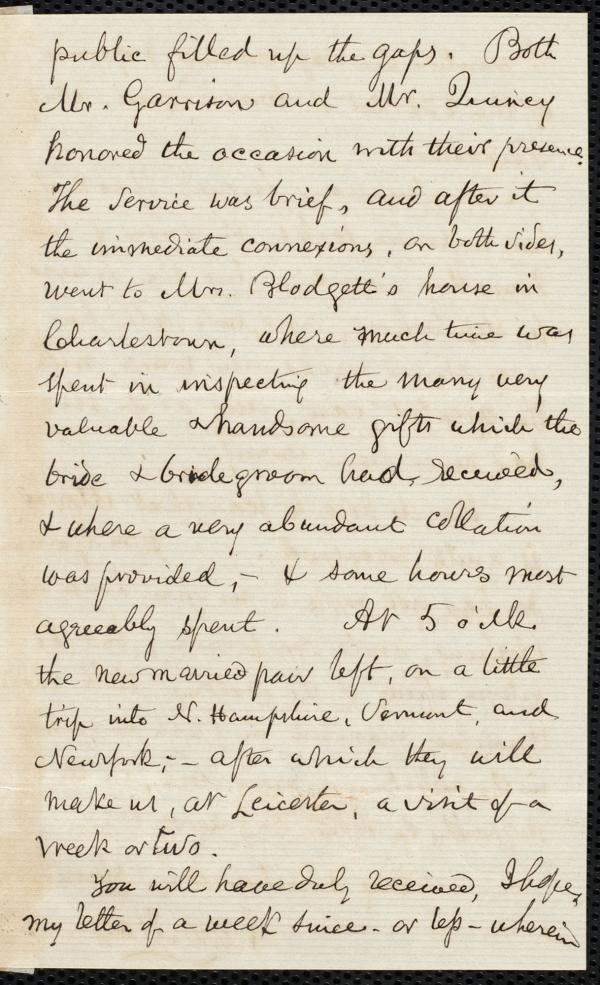 public filled up the gaps. Both
Mr. Garrison and Mr. Quincy
honored the occasion with their presence.
The service was brief, and after it
the immediate connexions, on both sides,
went to Mrs. Blodgett's house in
Charlestown, where much time was
spent in inspecting the many very
valuable & handsome gifts which the
bride & bridegroom had received,
& where a very abundant collation
was provided, - & some hours most
agreeably spent. At 5 o'clk.
the new married pair left, on a little
trip into N. Hampshire, Vermont, and
Newyork; - after which they will
make us, at Leicester, a visit of a
week or two.
You will have duly received, I hope,
my letter of a week since - or less - wherein